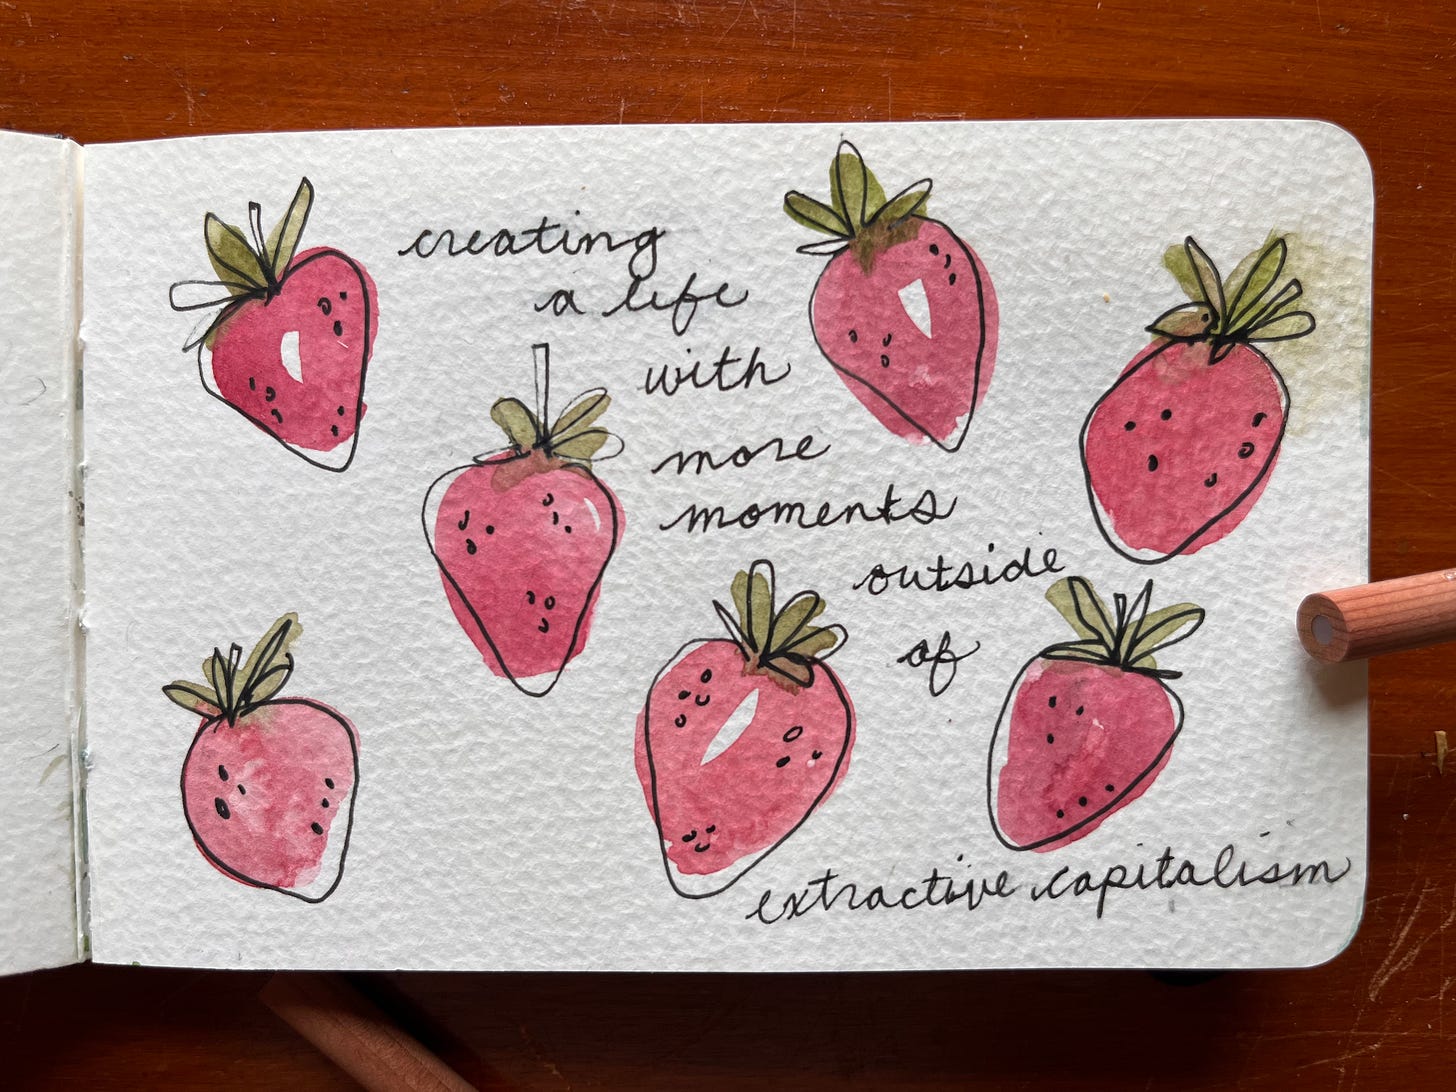 creating
a life
with
more
moments
outside
of
extractive capitalism